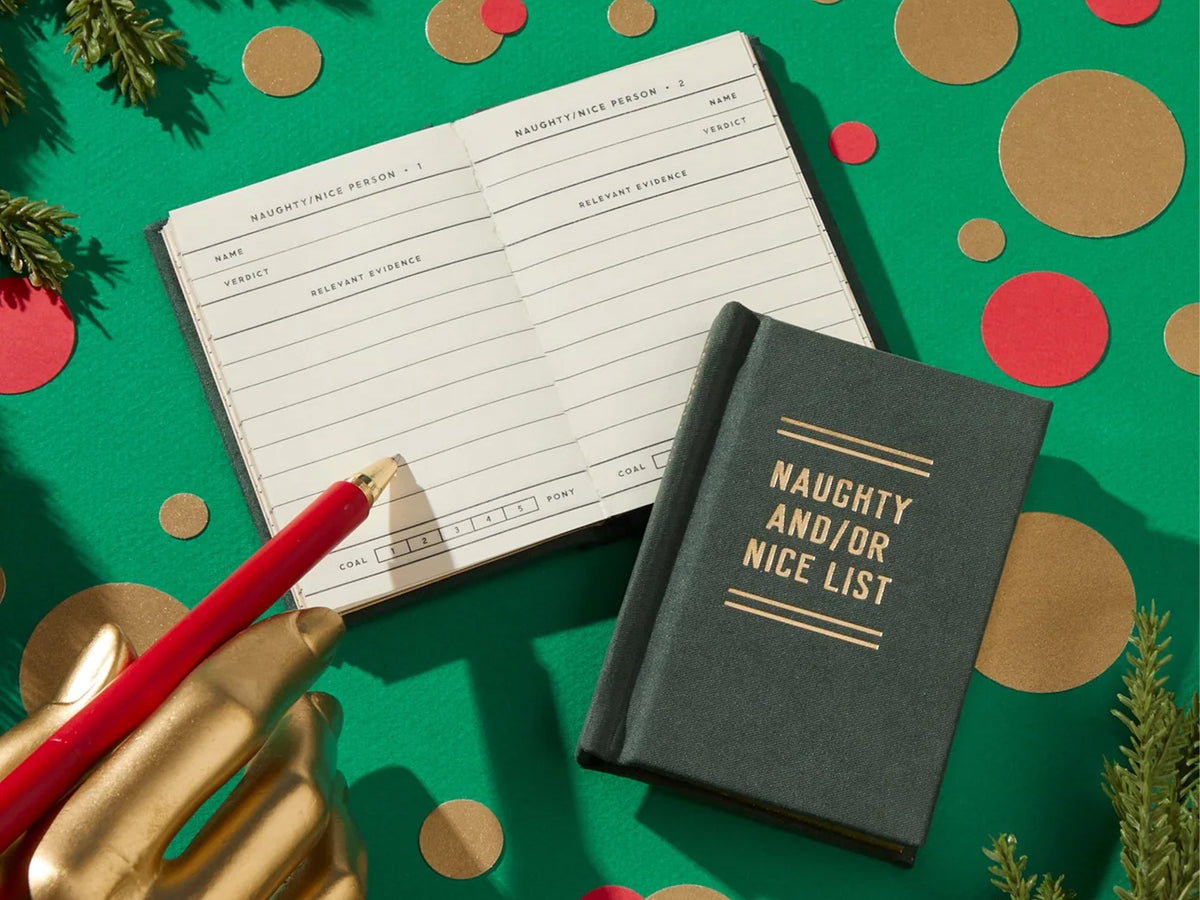 NAUGHTY/NICE PERSON • 1
NAME
VERDICT
RELEVANT EVIDENCE
COAL 1 2 3 4 5 PONY
NAUGHTY/NICE PERSON • 2
NAME
VERDICT
RELEVANT EVIDENCE
COAL
NAUGHTY
AND/OR
NICE LIST